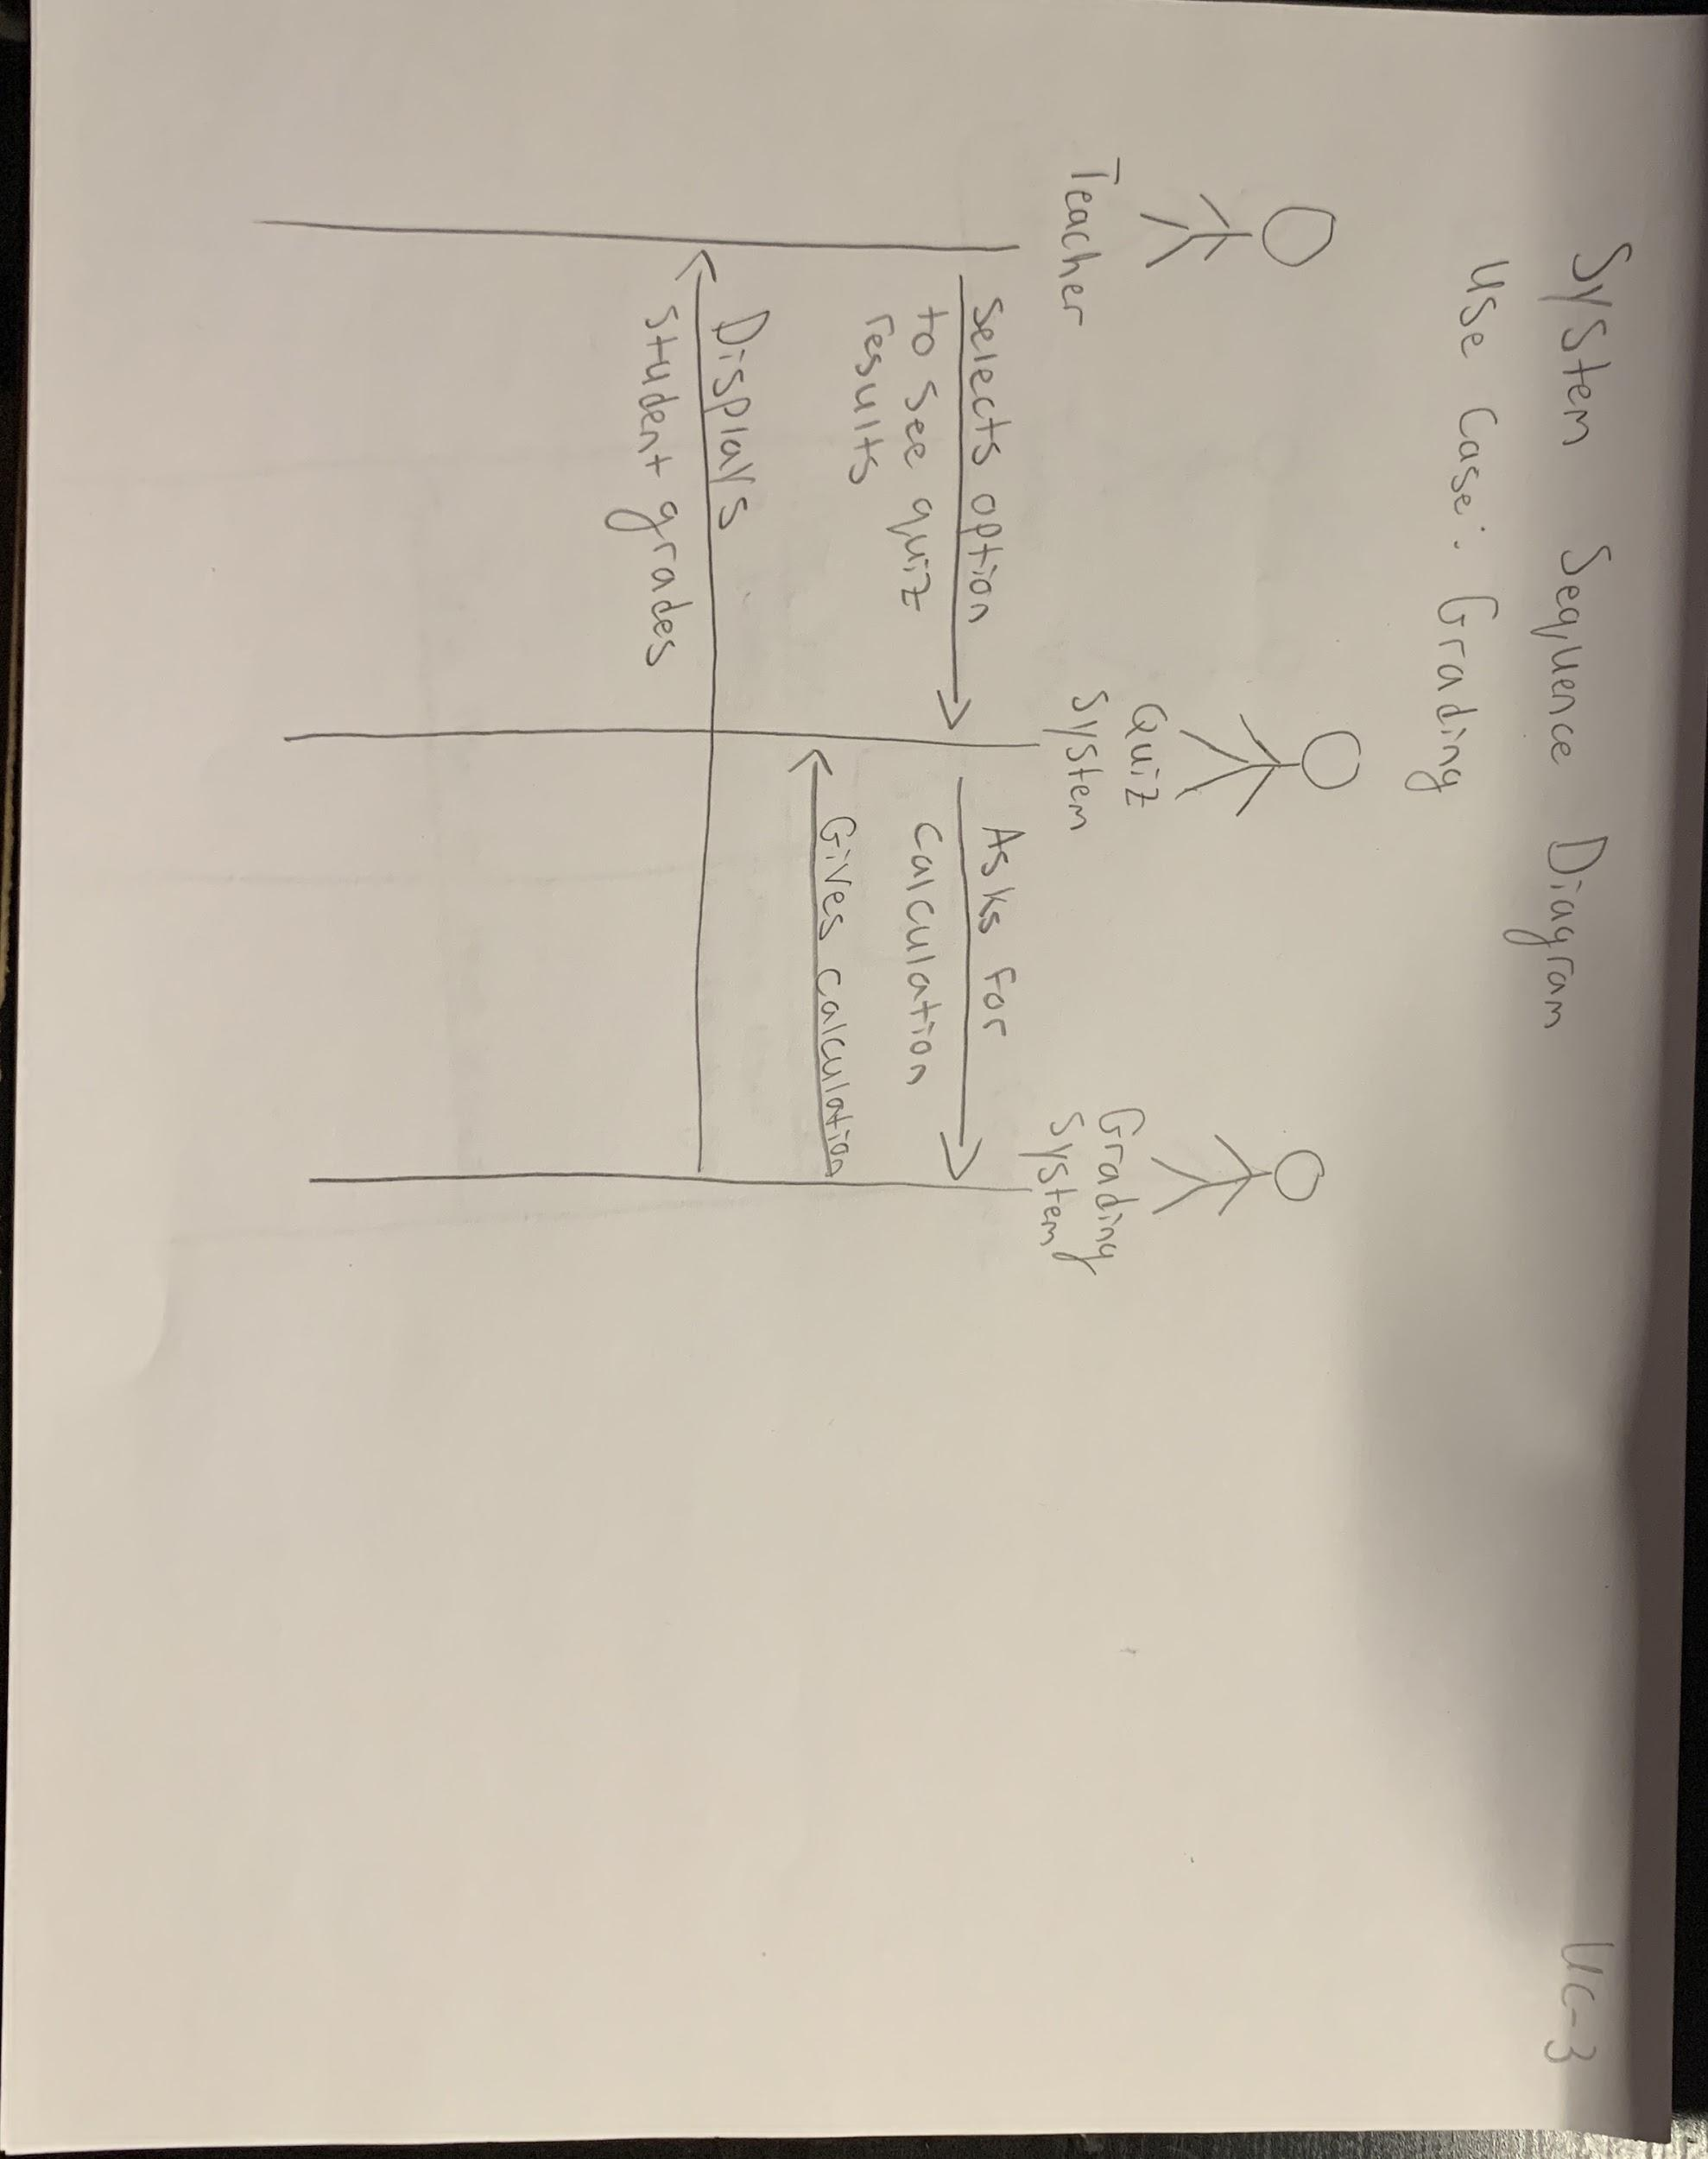 System Sequence Diagram
UC-3
Use Case: Grading
Teacher
Quiz
System
Grading
System
Selects option
to see quiz
results
Asks for
calculation
Gives calculation
Displays
student grades